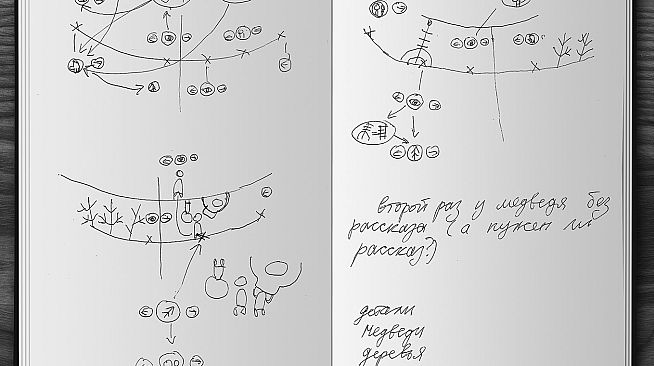 второй раз у медведя без
рассказа (а нужен ли
рассказ?)
детали
медведи
деревья